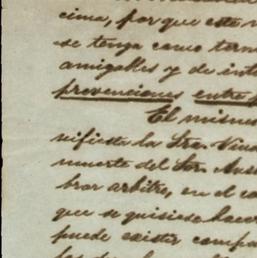 cima, por que este
se tenga como term
amigables y de int
prevenciones entre
El mismo
nifiesta la Sra. Viud
muerte del Sor. Aus
brar arbitro, en el ca
que se quisiese hacer
puede existir compa